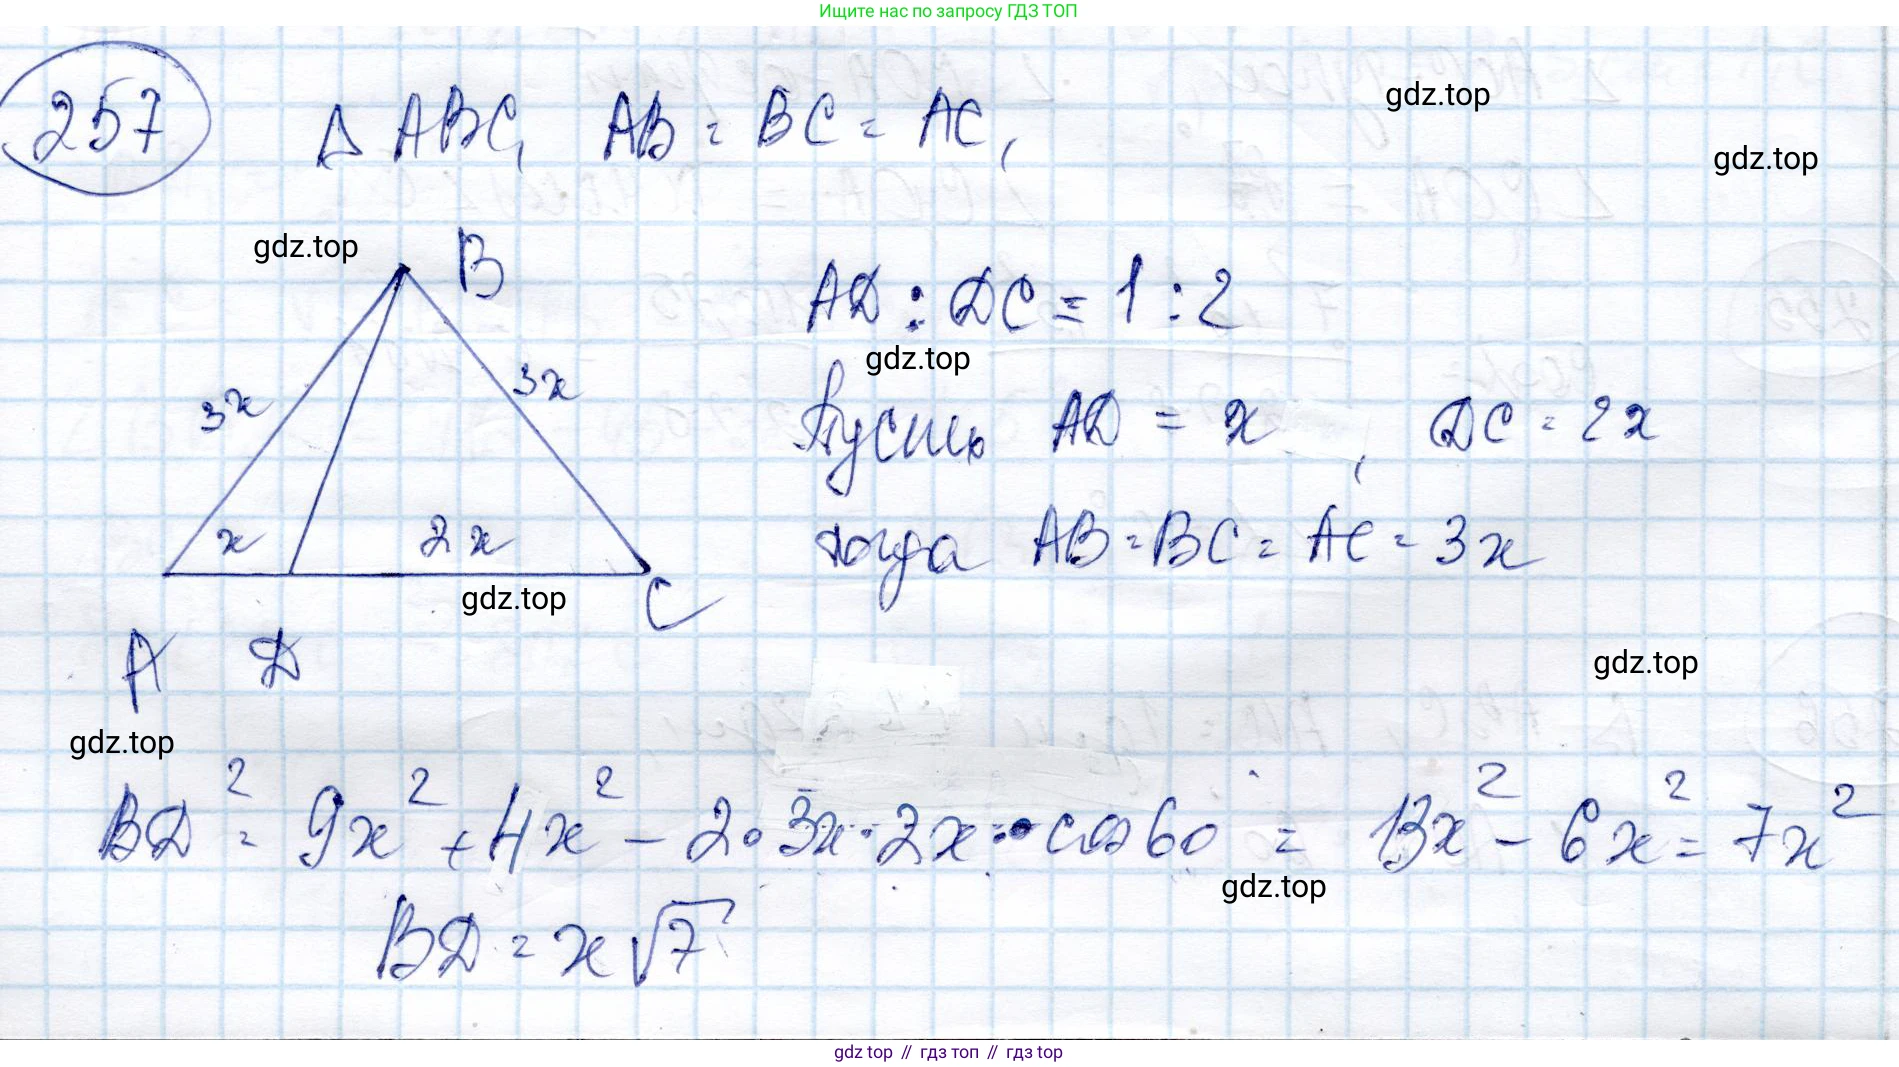 Ищите нас по запросу ГДЗ ТОП
257 Δ ABC, AB = BC = AC,
gdz.top
gdz.top
gdz.top
B
AD : DC = 1 : 2
gdz.top
3x
3x
Пусть AD = x, DC = 2x
x
2x
тогда AB = BC = AC = 3x
gdz.top
C
A D
gdz.top
gdz.top
BD² = 9x² + 4x² - 2 · 3x · 2x · cos 60 = 13x² - 6x² = 7x²
gdz.top
BD = x√7
gdz top // гдз топ // гдз top